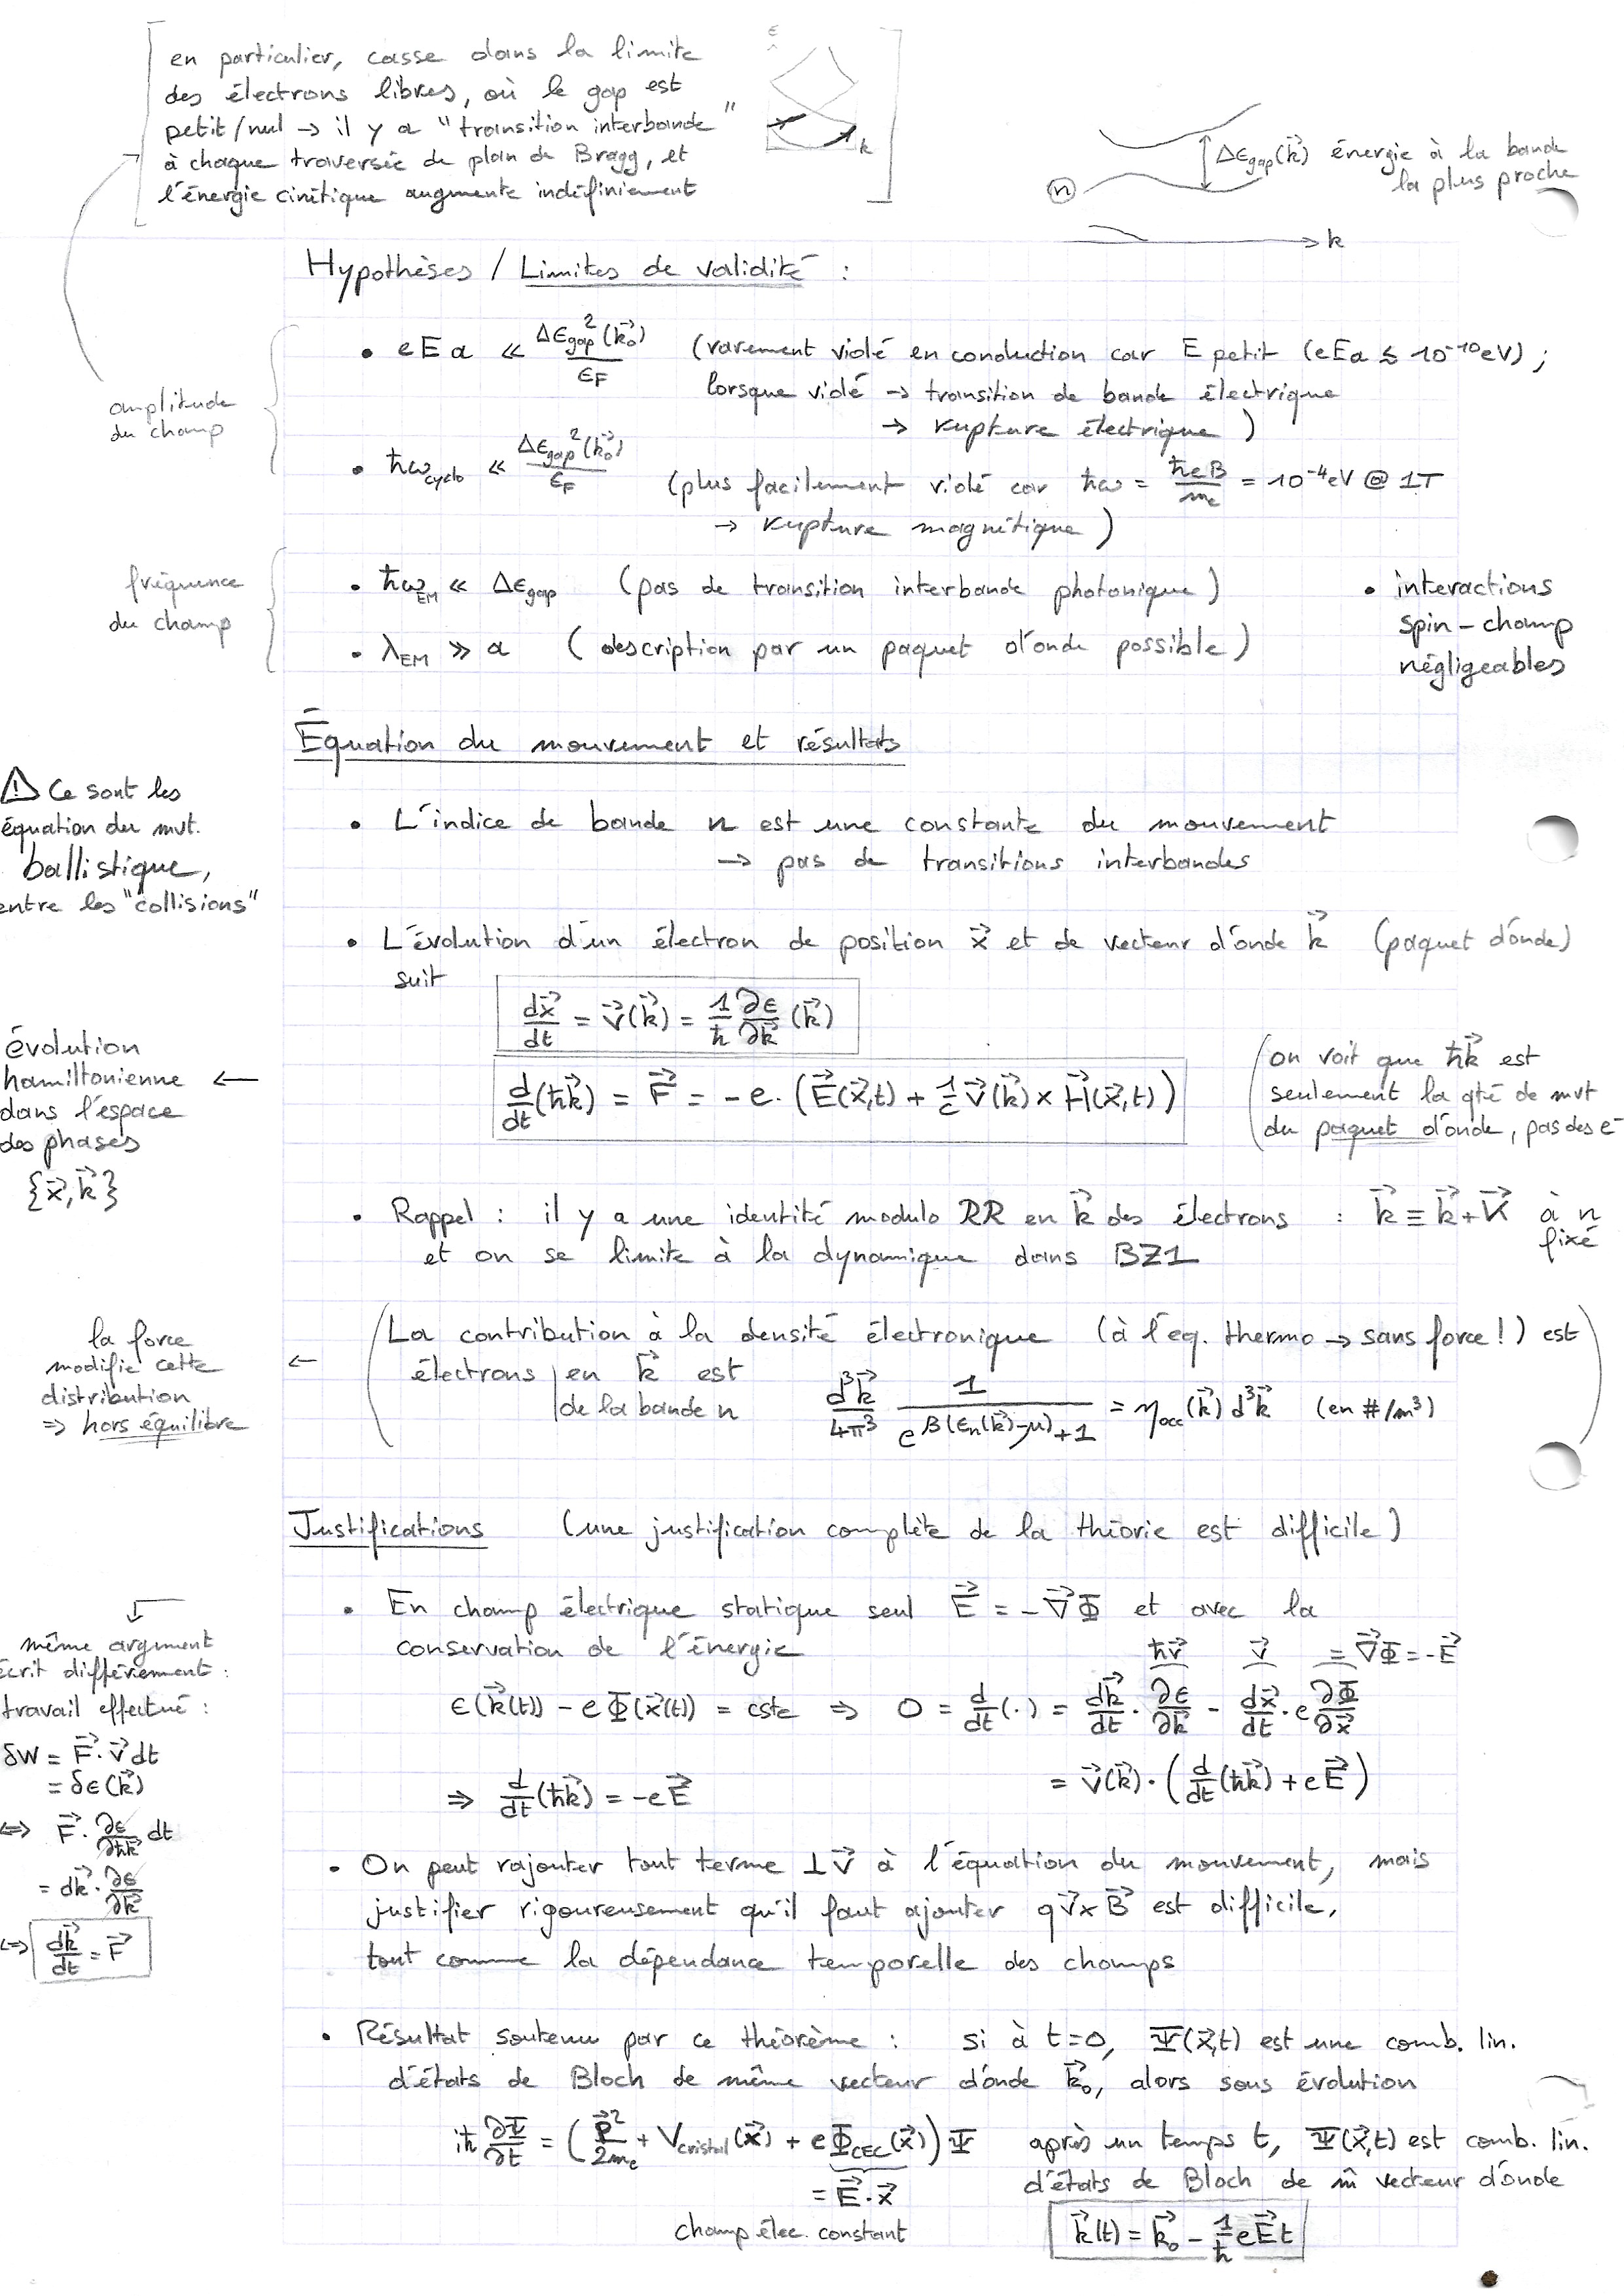 en particulier, casse dans la limite
des électrons libres, où le gap est
petit/nul → il y a "transition interbande"
à chaque traversée de plan de Bragg, et
l'énergie cinétique augmente indéfiniement
ε
k
ⓝ
Δε_gap(k⃗) énergie à la bande
la plus proche
→ k
Hypothèses / Limites de validité :
amplitude
du champ
• eEa ≪ Δε_gap²(k⃗₀)/ε_F (rarement violé en conduction car E petit (eEa ≲ 10⁻¹⁰ eV) ;
lorsque violé → transition de bande électrique
→ rupture électrique)
• ħω_cyclo ≪ Δε_gap²(k⃗₀)/ε_F (plus facilement violé car ħω = ħeB/m_e = 10⁻⁴ eV @ 1T
→ rupture magnétique)
fréquence
du champ
• ħω_EM ≪ Δε_gap (pas de transition interbande photonique)
• λ_EM ≫ a (description par un paquet d'onde possible)
• interactions
spin-champ
négligeables
Équation du mouvement et résultats
⚠ Ce sont les
équation du mvt.
ballistique,
entre les "collisions"
• L'indice de bande n est une constante du mouvement
→ pas de transitions interbandes
• L'évolution d'un électron de position x⃗ et de vecteur d'onde k⃗ (paquet d'onde)
suit
dx⃗/dt = v⃗(k⃗) = 1/ħ ∂ε/∂k⃗ (k⃗)
d/dt(ħk⃗) = F⃗ = -e·(E⃗(x⃗,t) + 1/c v⃗(k⃗) × H⃗(x⃗,t))
(on voit que ħk⃗ est
seulement la qté de mvt
du paquet d'onde, pas des e⁻
évolution
hamiltonienne ←
dans l'espace
des phases
{x⃗,k⃗}
• Rappel : il y a une identité modulo RR en k⃗ des électrons : k⃗ ≡ k⃗+K⃗ à n
fixé
et on se limite à la dynamique dans BZ1
la force
modifie cette ←
distribution
⇒ hors équilibre
(La contribution à la densité électronique (à l'eq. thermo → sans force !) est
électrons | en k⃗ est
| de la bande n
d³k⃗/4π³ 1/(e^{β(ε_n(k⃗)-μ)}+1) = η_occ(k⃗) d³k⃗ (en #/m³)
Justifications (une justification complète de la théorie est difficile)
• En champ électrique statique seul E⃗ = -∇⃗Φ et avec la
conservation de l'énergie
ħv⃗ v⃗ = ∇⃗Φ = -E⃗
ε(k⃗(t)) - eΦ(x⃗(t)) = cste ⇒ 0 = d/dt(·) = dk⃗/dt · ∂ε/∂k⃗ - dx⃗/dt · e ∂Φ/∂x⃗
= v⃗(k⃗)·(d/dt(ħk⃗) + eE⃗)
⇒ d/dt(ħk⃗) = -eE⃗
même argument
écrit différemment :
travail effectué :
δW = F⃗·v⃗dt
= δε(k⃗)
⇔ F⃗·∂ε/∂ħk⃗ dt
= dk⃗·∂ε/∂k⃗
⇔ dk⃗/dt = F⃗
• On peut rajouter tout terme ⊥ v⃗ à l'équation du mouvement, mais
justifier rigoureusement qu'il faut ajouter qv⃗×B⃗ est difficile,
tout comme la dépendance temporelle des champs
• Résultat soutenu par ce théorème : si à t=0, Ψ(x⃗,t) est une comb. lin.
d'états de Bloch de même vecteur d'onde k⃗₀, alors sous évolution
iħ ∂Ψ/∂t = (p⃗²/2m_e + V_cristal(x⃗) + eΦ_CEC(x⃗))Ψ après un temps t, Ψ(x⃗,t) est comb. lin.
= E⃗·x⃗
champ élec. constant
d'états de Bloch de m̂ vecteur d'onde
k⃗(t) = k⃗₀ - 1/ħ eE⃗t